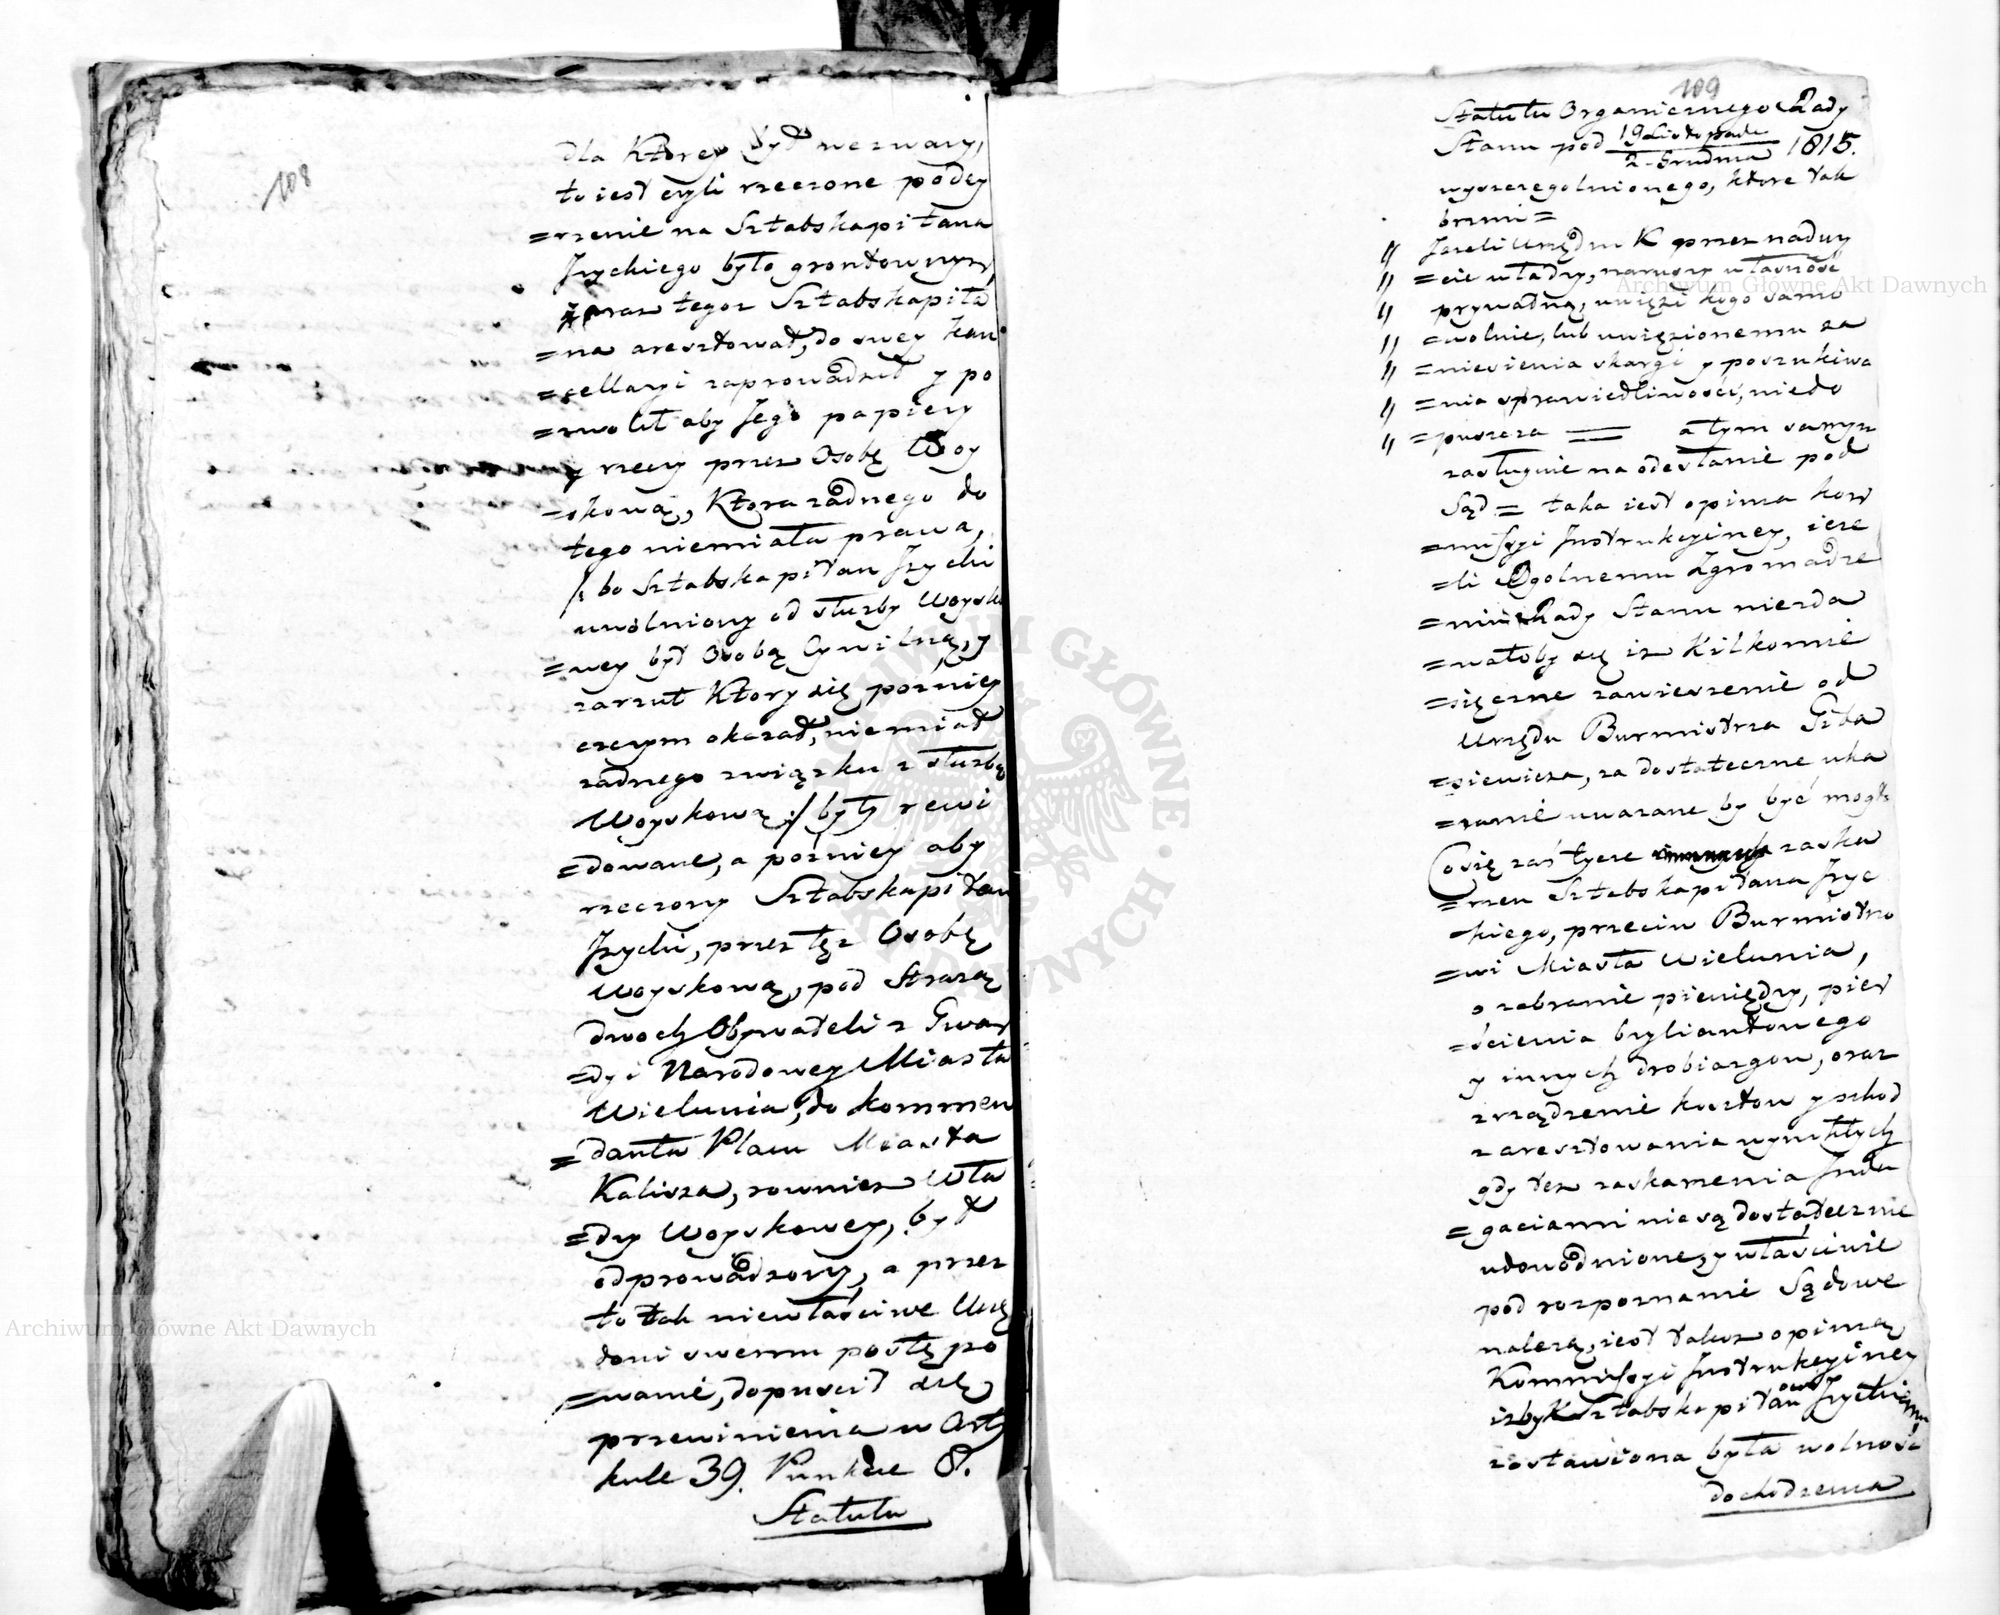 108
dla Ktorey był wezwany,
to iest czyli rzeczone podey
=rzenie na Sztabskapitana
Jzyckiego było grontownym,
zaraz tegoz Sztabskapita
=na aresztował, do swey kan
=cellaryi zaprowadził y po
=zwolił aby Jego papiery
y rzeczy przez Osobę Woy
=skową, Ktora zadnego do
tego niemiała prawa,
/: bo Sztabskapitan Jzycki
uwolniony od służby Woysko
=wey był Osobą Cywilną, y
zarzut Ktory się pozniey
czczym okazał, niemiał
zadnego związku z służbą
Woyskową :/ były rewi
=dowane, a pozniey aby
rzeczony Sztabskapitan
Jzycki, przez tęz Osobę
Woyskową, pod Strazą
dwoch Obywateli z Gwar
=dyi Narodowey Miasta
Wielunia, do kommen
=danta Placu Miasta
Kalisza, rowniez Wła
=dzy Woyskowey, był
odprowadzony, a przez
to tak niewłaściwe Urzę
dowi swemu postępo
=wanie, dopuscił się
przewinienia w Arty
kule 39. Punkcie 8.
Statutu
109
Statutu Organicznego Rady
Stanu pod 19 Listopada / 2 Grudnia 1815.
wyszczegolnionego, ktore tak
brzmi =
" Jezeli Urzędnik przez naduzy
" =cie władzy, naruszy własność
" prywatną, uwięzi kogo samo
" =wolnie, lub uwięzionemu za
" =niesienia skargi y poszukiwa
" =nia sprawiedliwości, niedo
" =puszcza = a tym samym
zasługuie na odesłanie pod
Sąd = taka iest opinia kom
=missyi Jnstrukcyiney, ieze
=li Ogolnemu Zgromadze
=niu Rady Stanu niezda
=wałoby się iz Kilkomie
=sięczne zawieszenie od
Urzędu Burmistrza Gr
=siewicza, za dostateczne uka
=ranie uwazane by być mogło
Co się zaś tycze zaska
=rzeń Sztabskapitana Jzyc
=kiego, przeciw Burmistrzo
=wi Miasta Wielunia,
o zabranie pieniędzy, pier
=ścienia brylantowego
y innych drobiazgow, oraz
zrządzenie kosztow y szkod
z aresztowania wynikłych
gdy tez zaskarzenia Jnda
=gaciami nie są dostatecznie
udowodnione, y właściwie
pod rozpoznanie Sądowe
nalezą, iest takze opinią
Kommissyi Jnstrukcyiney
izby Sztabskapitanowi Jzyckiemu
zostawiona była wolność
dochodzenia
Archiwum Główne Akt Dawnych
Archiwum Główne Akt Dawnych
ARCHIWUM GŁÓWNE AKT DAWNYCH